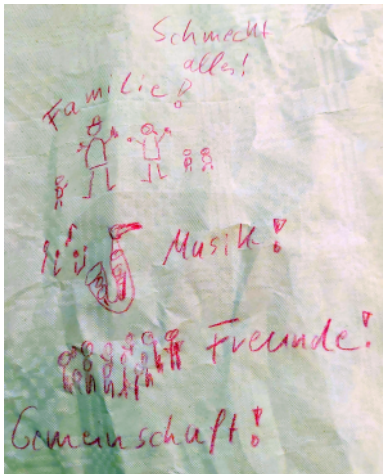 Schmeckt
alles!
Familie!
Musik!
Freunde!
Gemeinschaft!